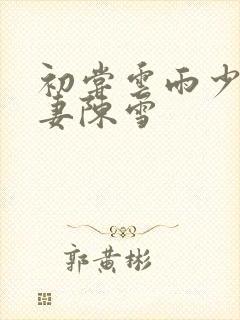 初尝云雨少
妻陈雪
郭黄彬